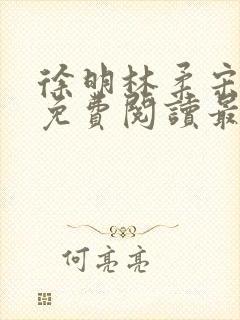 徐明林柔宗
免費閱讀最
何亮亮